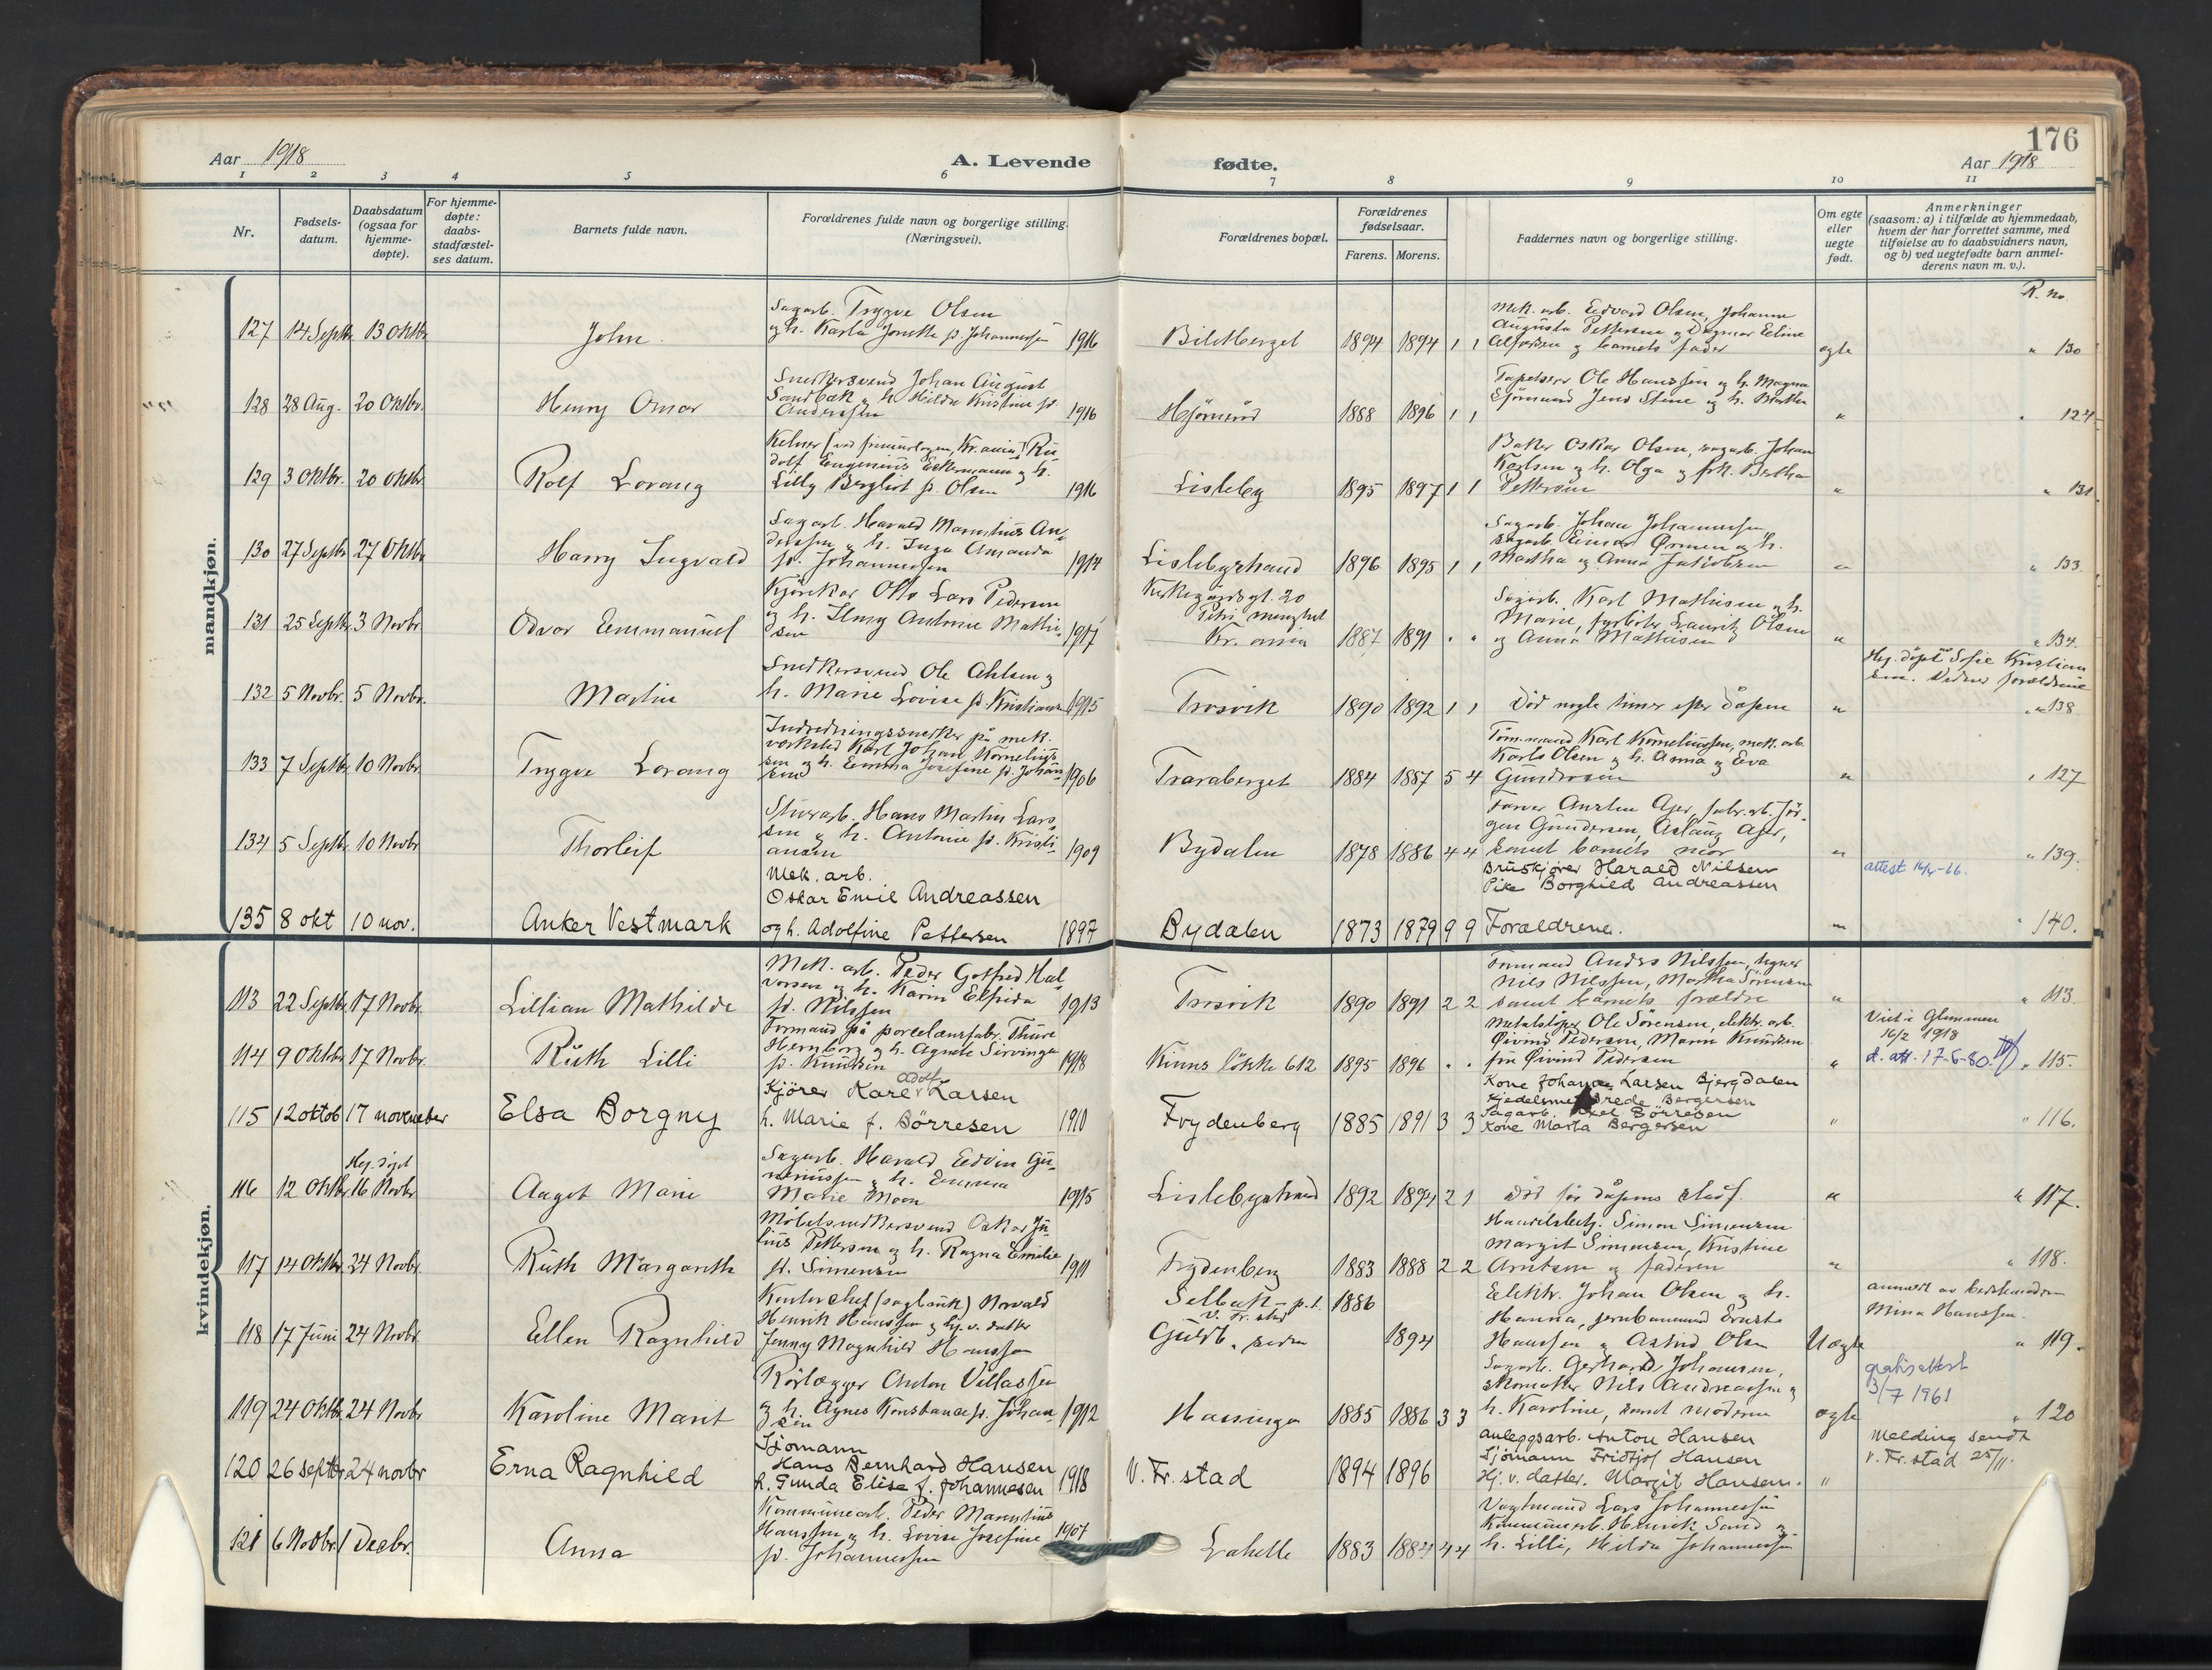 176
Aar 1918
A. Levende
fødte.
Aar 1918
1 2 3 4 5 6 7 8 9 10 11
Nr.
Fødsels-
datum.
Daabsdatum
(ogsaa for
hjemme-
døpte).
For hjemme-
døpte:
daabs-
stadfæstel-
ses datum.
Barnets fulde navn.
Forældrenes fulde navn og borgerlige stilling.
(Næringsvei).
Forældrenes bopæl.
Forældrenes
fødselsaar.
Farens. Morens.
Faddernes navn og borgerlige stilling.
Om egte
eller
uegte
født.
Anmerkninger
(saasom: a) i tilfælde av hjemmedaab,
hvem der har forrettet samme, med
tilføielse av to daabsvidners navn,
og b) ved uegtefødte barn anmel-
derens navn m. v.).
R. no.
mandkjøn.
127 14 Septbr 13 Oktbr
John
Sagarb. Trygve Olsen
og h. Karla f. Johannessen 1916
1894 1894 1 1
Mek. arb. Edvard Olsen, Johanne
Augusta Pettersen og Dagmar Eeline
Alfredsen og barnets fader
egte
" 130
128 28 Aug. 20 Oktbr.
Henry Omar
Snedkersvend Johan August
Sandbæk og h. Hilda Kristine f.
Anderssen 1916
1888 1896 1 1
Tapetserer Ole Hanssen og h. Magna
Jens Stene og h. Berthe
" 124
129 3 Oktbr. 20 Oktbr
Rolf Lorang
Kelner
dolf Eugenius Eckermann og h.
Lilly Bergliot f. Olsen 1916
Lisleby
1895 1897 1 1
Baker Oskar Olsen, sagarb. Johan
Karlsen og h. Olga og frk. Bertha
Pettersen
" 131
130 27 Septbr 27 Oktbr
Harry Ingvald
Sagarb. Harald Marentius An-
derssen og h. Inga Amanda
f. Johannessen 1914
Lislebystrand
1896 1895 1 1
Sagarb. Johan Johannessen,
Sagarb. Einar Ørmen og h.
Martha og Anna Jakobsen
" 133
131 25 Septbr 3 Novbr
Odvar Emmanuel
Kjørekar Otto Lars Pedersen
og h. Antonie Mathi-
sen 1917
Kirkegårdsgt. 20
Petri menighet
Kr.ania
1887 1891 " "
Sagarb. Karl Mathisen og h.
Marie, fyrbøter Lauritz Olsen
og Anna Mathisen
" 134
132 5 Novbr. 5 Novbr.
Martin
Snedkersvend Ole Ahlsen og
h. Marie Lovise f. Kristiansen 1915
Trosvik
1890 1892 1 1
Død nogle timer efter dåpen
Hj. døpt Sofie Kristian
sen. Vidner forældrene
" 138
133 7 Septbr 10 Novbr.
Trygve Lorang
Indredningssnekker på mek.
verksted Karl Johan Kornelius-
sen og h. Emma Josefine f. Johan-
sen 1906
Traraberget
1884 1887 5 4
Tømmermand Karl Korneliussen, mek. arb.
Karlo Olsen og h. Anna og Eva
Gundersen
" 127
134 5 Septbr 10 Novbr
Thorleif
Stuerarb. Hans Martin Lars-
sen og h. Antonie f. Kristi-
ansen 1909
Bydalen
1878 1886 4 4
Farver Ager, fabr. arb. Jør-
gen Gundersen, Aslaug Ager,
samt barnets mor
" 139.
attest 16/4-66
135 8 okt 10 nov.
Anker Vestmark
Mek. arb.
Oskar Emil Andreassen
og h. Adolfine Pettersen 1897
Bydalen
1873 1879 9 9
Bruskjører Harald Nilsen
Pike Borghild Andreassen
Forældrene.
" 140.
kvindekjøn.
113 22 Septbr 17 Novbr.
Lillian Mathilde
Mek. arb. Peder Gotfred Hal-
vorsen og h. Karin Elfrida
f. Nilssen 1913
Trosvik
1890 1891 2 2
Formand Anders Nilssen, tegner
Nils Nilssen, Martha Sørensen
samt barnets forældre
" 113.
114 9 Oktbr 17 Novbr.
Ruth Lilli
Formand på porcelænsfabr. Thure
Hernborg og h. Agnete Sirvinga
f. Knudsen 1918
Kinns løkke 612
1895 1896 " "
Metalstøper Ole Sørensen, elektr. arb.
Øivind Pedersen, Maren Knudsen
fru Øivind Pedersen
Viet i Glemmen
16/2 1918
d. att. 17-6-80.
" 115.
115 12 oktob 17 november
Elsa Borgny
Kjörer Karl Adolf Larsen
h. Marie f. Börresen 1910
Frydenberg
1885 1891 3 3
Kone Johanna Larsen Bjergdalen
Bergersen
Sagarb. Axel Börresen
Kone Marta Bergersen
" 116.
116 12 Oktbr
Hj. døpt
16 Novbr
Aagot Marie
Sagarb. Harald Edvin Gu-
neriussen og h. Emma
Marie Moen 1915
Lislebystrand
1892 1894 2 1
Død før dåpens stadf.
" 117.
117 14 Oktbr. 24 Novbr.
Ruth Margareth
Møbelsnedkersvend Oskar Ju-
lius Pettersen og h. Ragna Emilie
f. Simensen 1911
Frydenberg
1883 1888 2 2
Handelsbetj. Simon Simensen
Margit Simensen, Kristine
Arntsen og faderen
" 118.
118 17 Juni 24 Novbr
Ellen Ragnhild
Kontorchef (sagbruk) Norvald
Henrik Hanssen og hj. v. datter
Jenny Magnhild Hanssen
Selbak - p.t.
V. Fr.stad
1886
1894
Elektr. Johan Olsen og h.
Hanna, jernbanemand Ernst
Hanssen og Astrid Olsen
Uegte
anmeldt av bestemoderen
Mina Hanssen.
" 119.
119 24 Oktbr. 24 Novbr
Karoline Marit
Rørlægger Anton Villassen
og h. Agnes Konstance f. Johan
sen 1912
Hassinga
1885 1886 3 3
Sagarb. Gerhard Johansen,
skomaker Nils Andreassen og
h. Karoline, samt moderen
egte
gratisattest
3/7 1961
" 120
120 26 septbr 24 novbr
Erna Ragnhild
Sjömann
Hans Bernhard Hansen
h. Gunda Elise f. Johannesen 1918
V. Fr. stad
1894 1896
Anleggsarb. Anton Hansen
Sjömann Fridtjof Hansen
Hj. v. datter. Margit Hansen.
"
Melding sendt
v. Fr. stad 25/11.
121 6 Novbr. 1 Decbr.
Anna
Kommunearb. Peder Marentius
Hanssen og h. Lovise Josefine 1907
f. Johannessen
Labelle
1883 1884 4 4
Vagtmand Lars Johannessen
Kommunearb. Henrik Sand og
h. Lilli, Hilda Johannessen